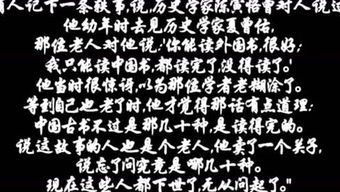 有人记下一条轶事,说,历史学家陈寅恪曾对人说过,
他幼年时去见历史学家夏曾佑,
那位老人对他说:'你能读外国书,很好;
我只能读中国书,都读完了,没得读了.'
他当时很惊讶,以为那位学者老糊涂了.
等到自己也老了时,他才觉得那话有点道理:
中国古书不过是那几十种,是读得完的.
说这故事的人也是个老人,他卖了一个关子,
说忘了问究竟是哪几十种.
现在这些人都下世了,无从问起了."